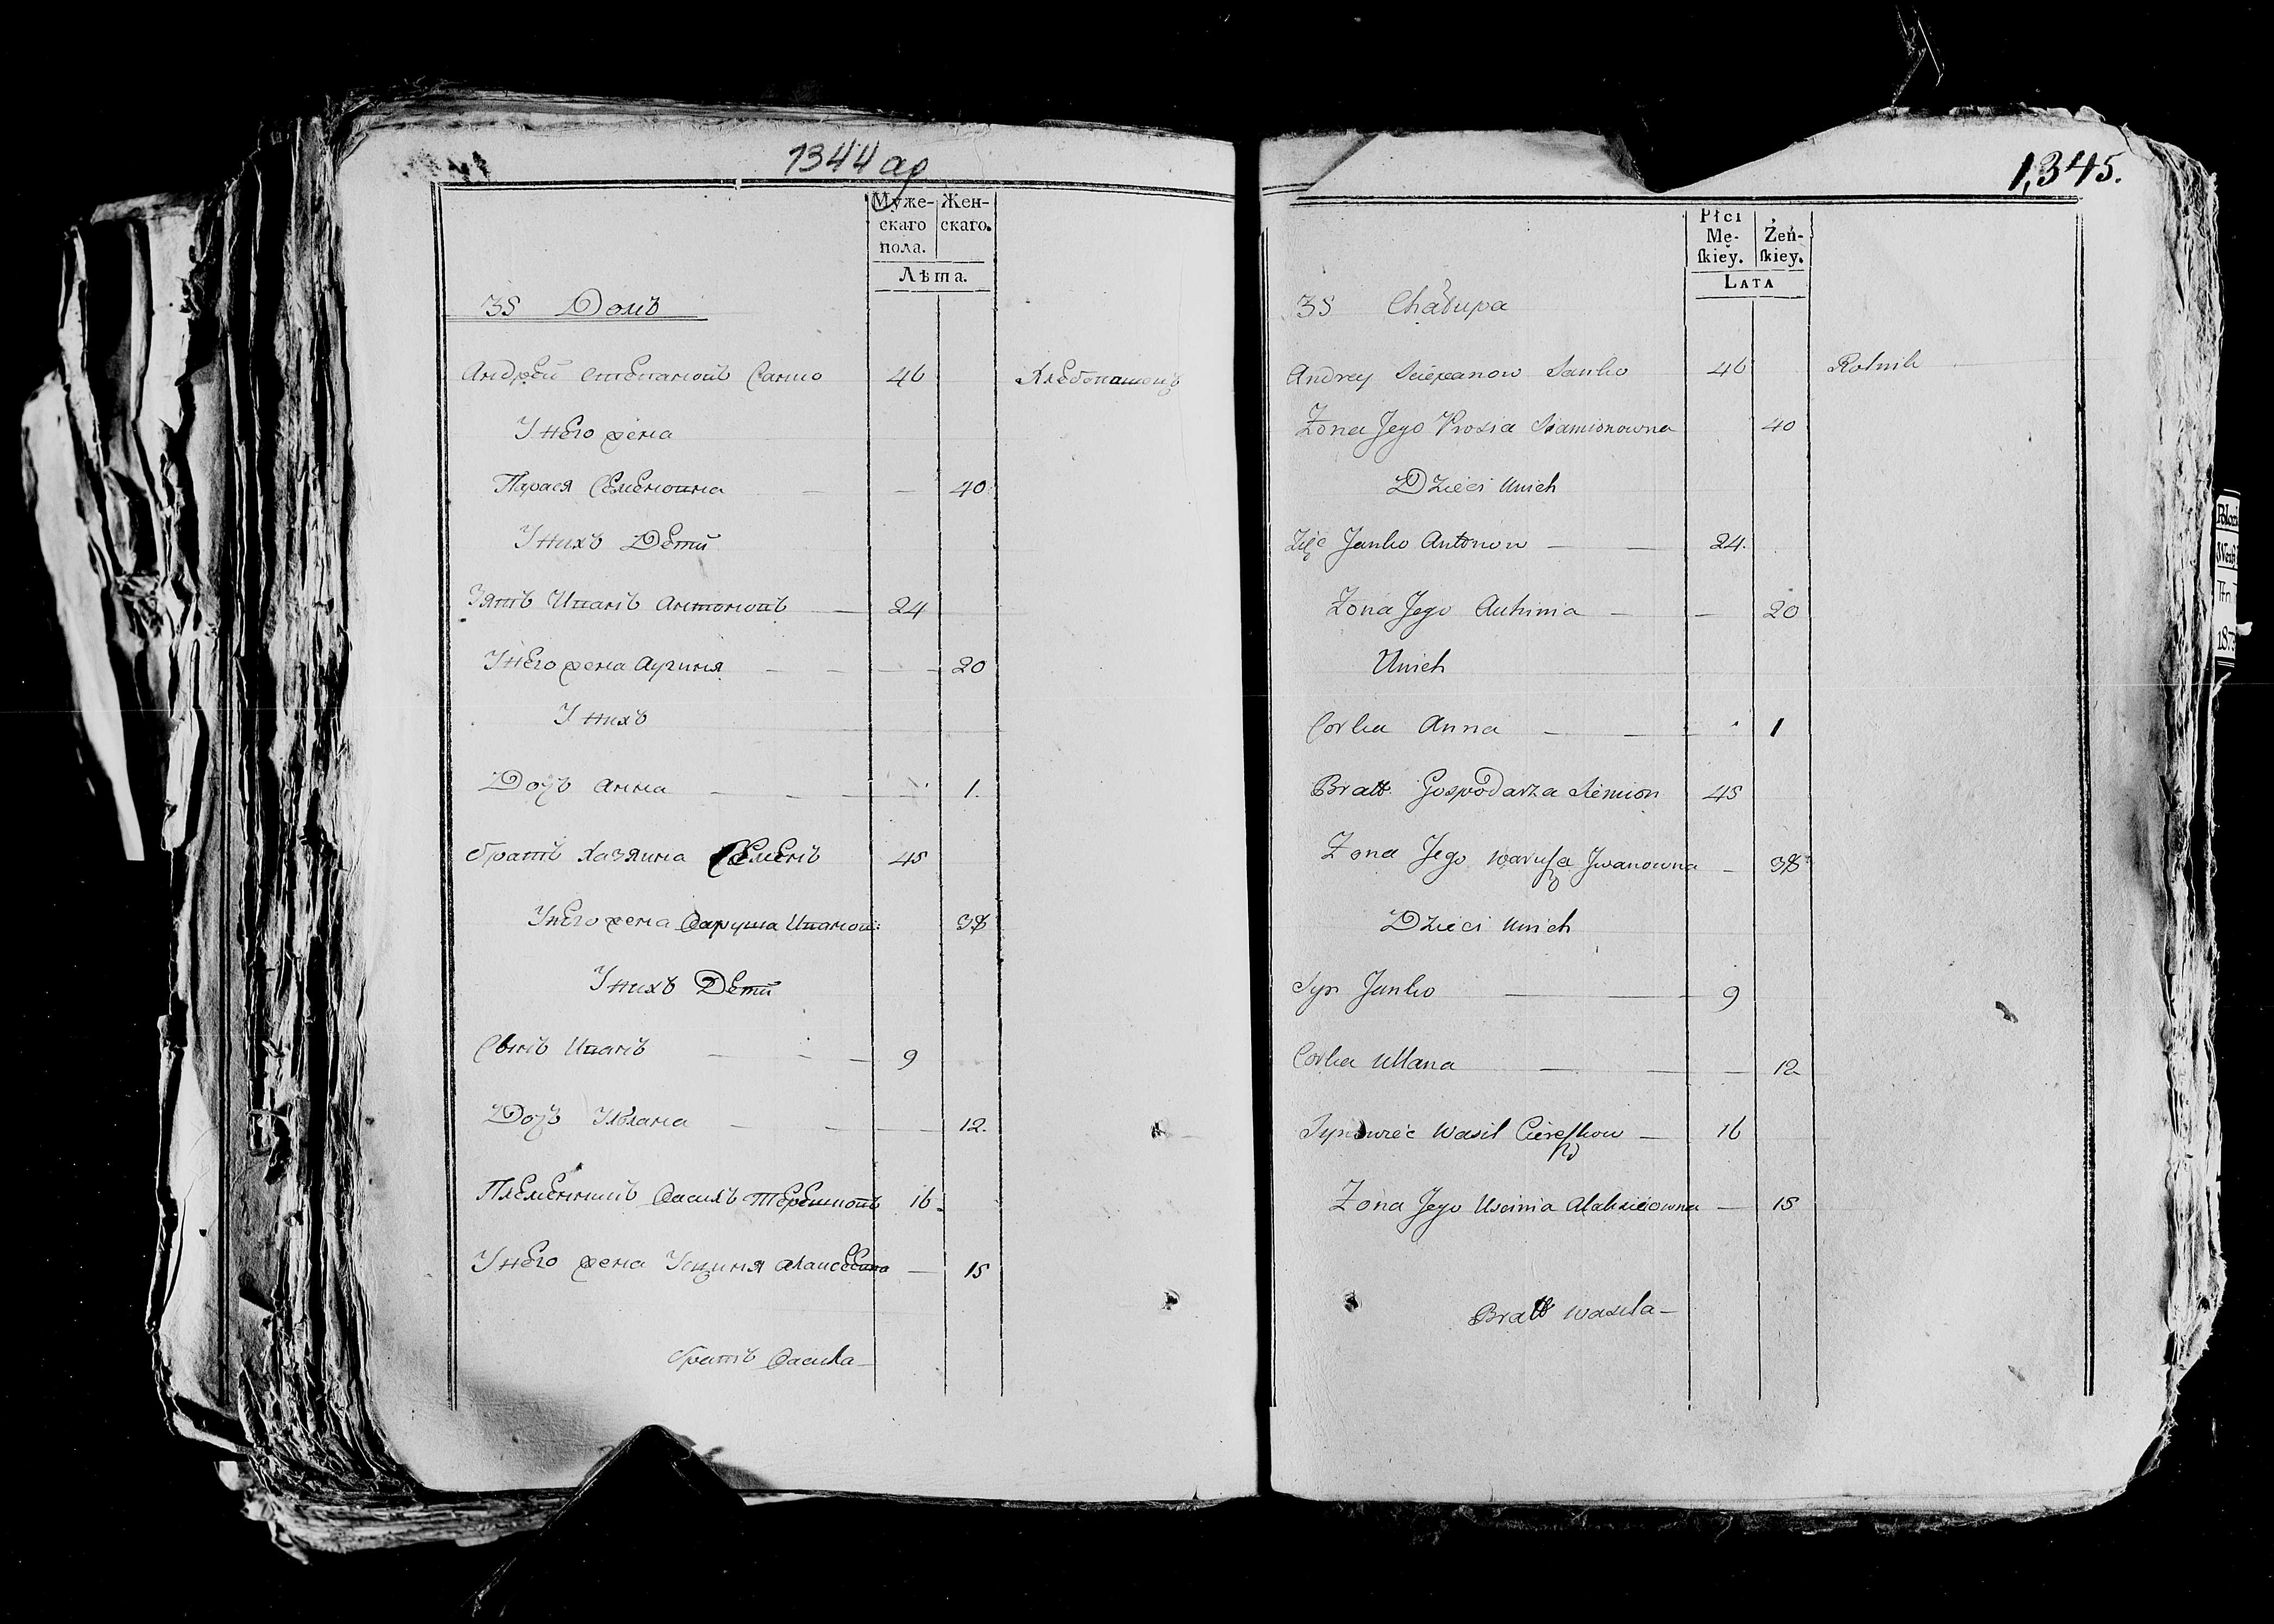 1344 ар
Муже-
скаго
пола.
Жен-
скаго.
Лѣта.
35 Домъ
Андрей Степановъ Санко 46 Хлебопашецъ
У него жена
Парася Семеновна — — 40
У нихъ Дети
Зять Иванъ Антоновъ — 24
У него жена Аугиня — — — 20
У нихъ
Дочъ Анна — — — 1.
братъ Хазяина Семенъ 45
У него жена Варуша Иванов: 38
У нихъ Дети
Сынъ Иванъ — — — 9
Дочъ Ульяна — — — 12.
Племенникъ Василь Терешковъ 16.
У него жена Усциня — 15
братъ Васила —
1,345.
Płci
Mę-
ſkiey.
Żeń-
ſkiey.
LATA
35 Chałupa
Andrey Sciepanow Sanko 46 Rolnik
Zona Jego Prosia Siamionowna 40
Dzieci Unich
Zięc Janko Antonow — — 24.
Zona Jego Auhinia — — 20
Unich
Corka Anna — — 1
Bratt Gospodarza Siemion 45
Zona Jego Waruſza Jwanowna — 38
Dzieci Unich
Syn Janko — — 9
Corka Ullana — — — 12
Synowiec Wasil Ciereſzkow — 16
Zona Jego Uscinia Alaksieiowna — 15
Bratt Wasila —